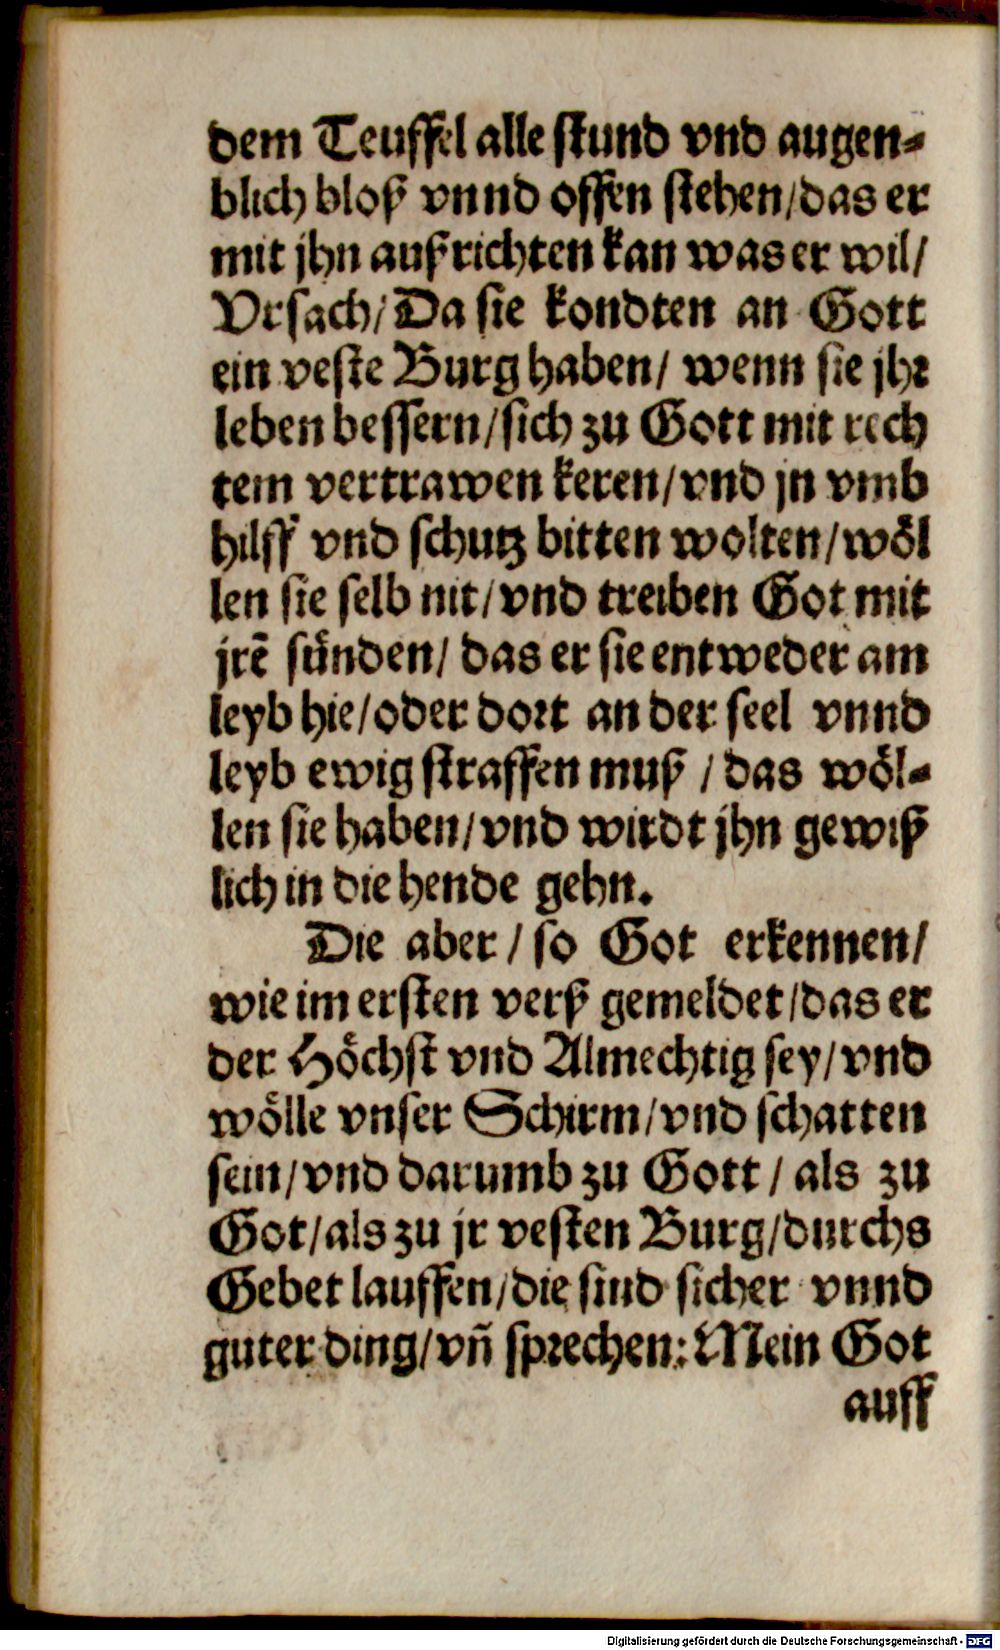 dem Teuffel alle stund vnd augen-
blich bloß vnnd offen stehen/das er
mit jhn außrichten kan was er wil/
Vrsach/Da sie kondten an Gott
ein veste Burg haben/ wenn sie jhr
leben bessern/sich zu Gott mit rech
tem vertrawen keren/vnd jn vmb
hilff vnd schutz bitten wolten/wöl
len sie selb nit/vnd treiben Got mit
jrē sünden/ das er sie entweder am
leyb hie/oder dort an der seel vnnd
leyb ewig straffen muß / das wöl-
len sie haben/vnd wirdt jhn gewiß
lich in die hende gehn.
Die aber / so Got erkennen/
wie im ersten verß gemeldet/das er
der Höchst vnd Almechtig sey/vnd
wölle vnser Schirm/vnd schatten
sein/vnd darumb zu Gott/ als zu
Got/als zu jr vesten Burg/durchs
Gebet lauffen/die sind sicher vnnd
guter ding/vñ sprechen: Mein Got
auff
Digitalisierung gefördert durch die Deutsche Forschungsgemeinschaft - DFG